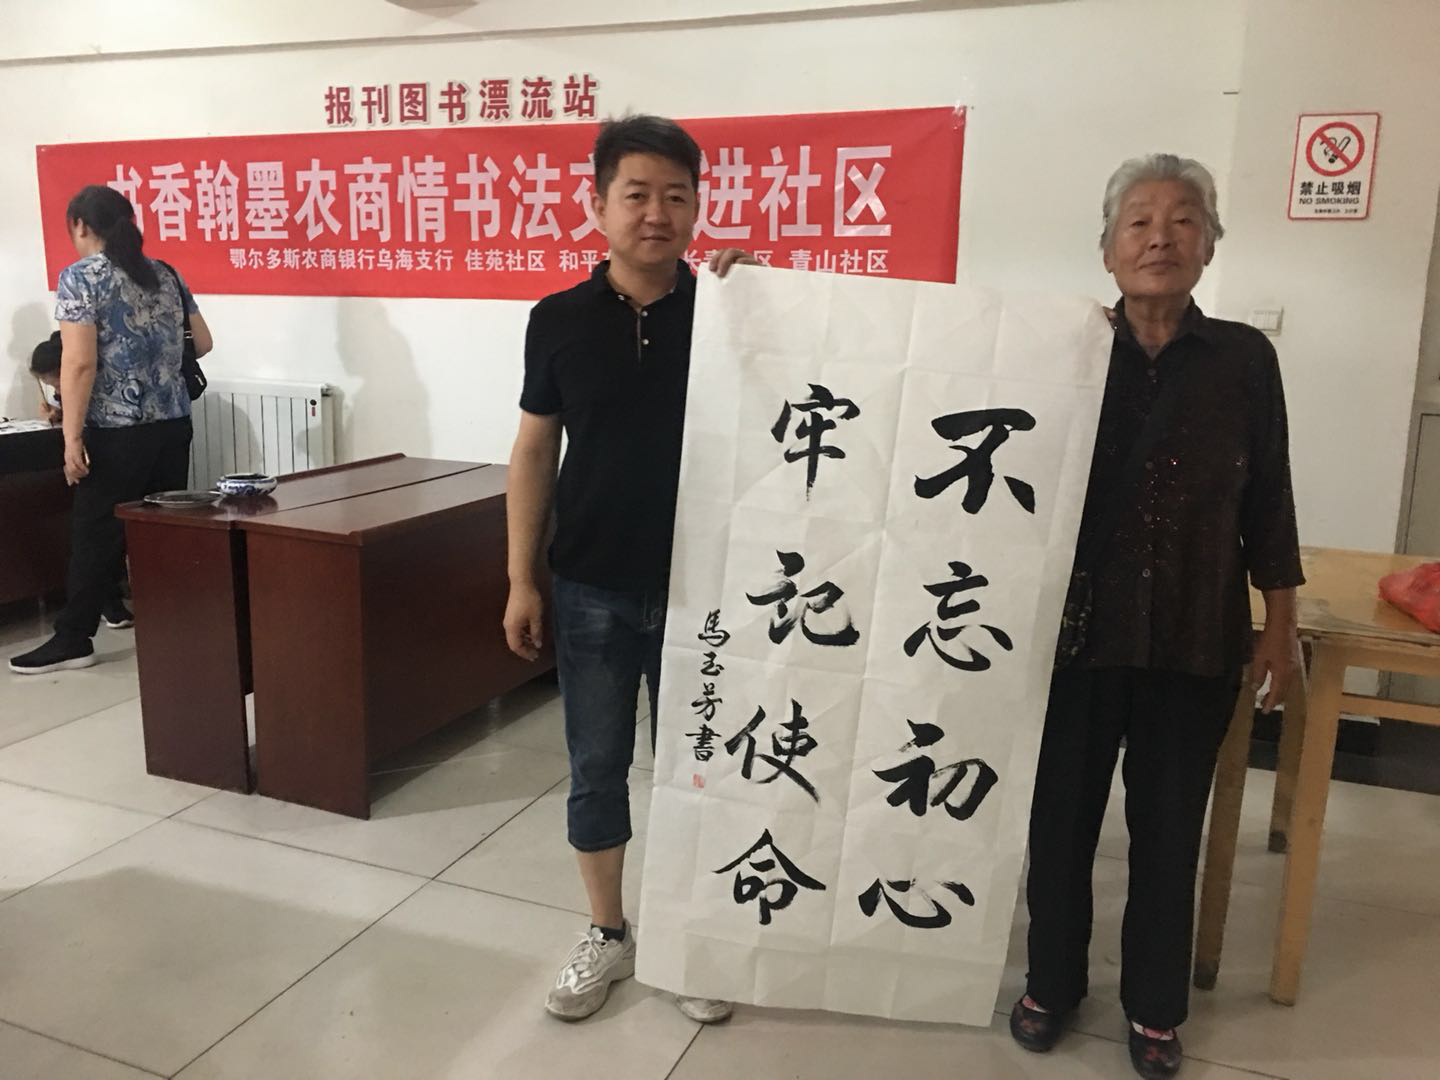 报刊图书漂流站
书香翰墨农商情书法交 进社区
鄂尔多斯农商银行乌海支行 佳苑社区 和平 长青 区 青山社区
禁止吸烟
NO SMOKING
不忘初心
牢记使命
馬玉芳書